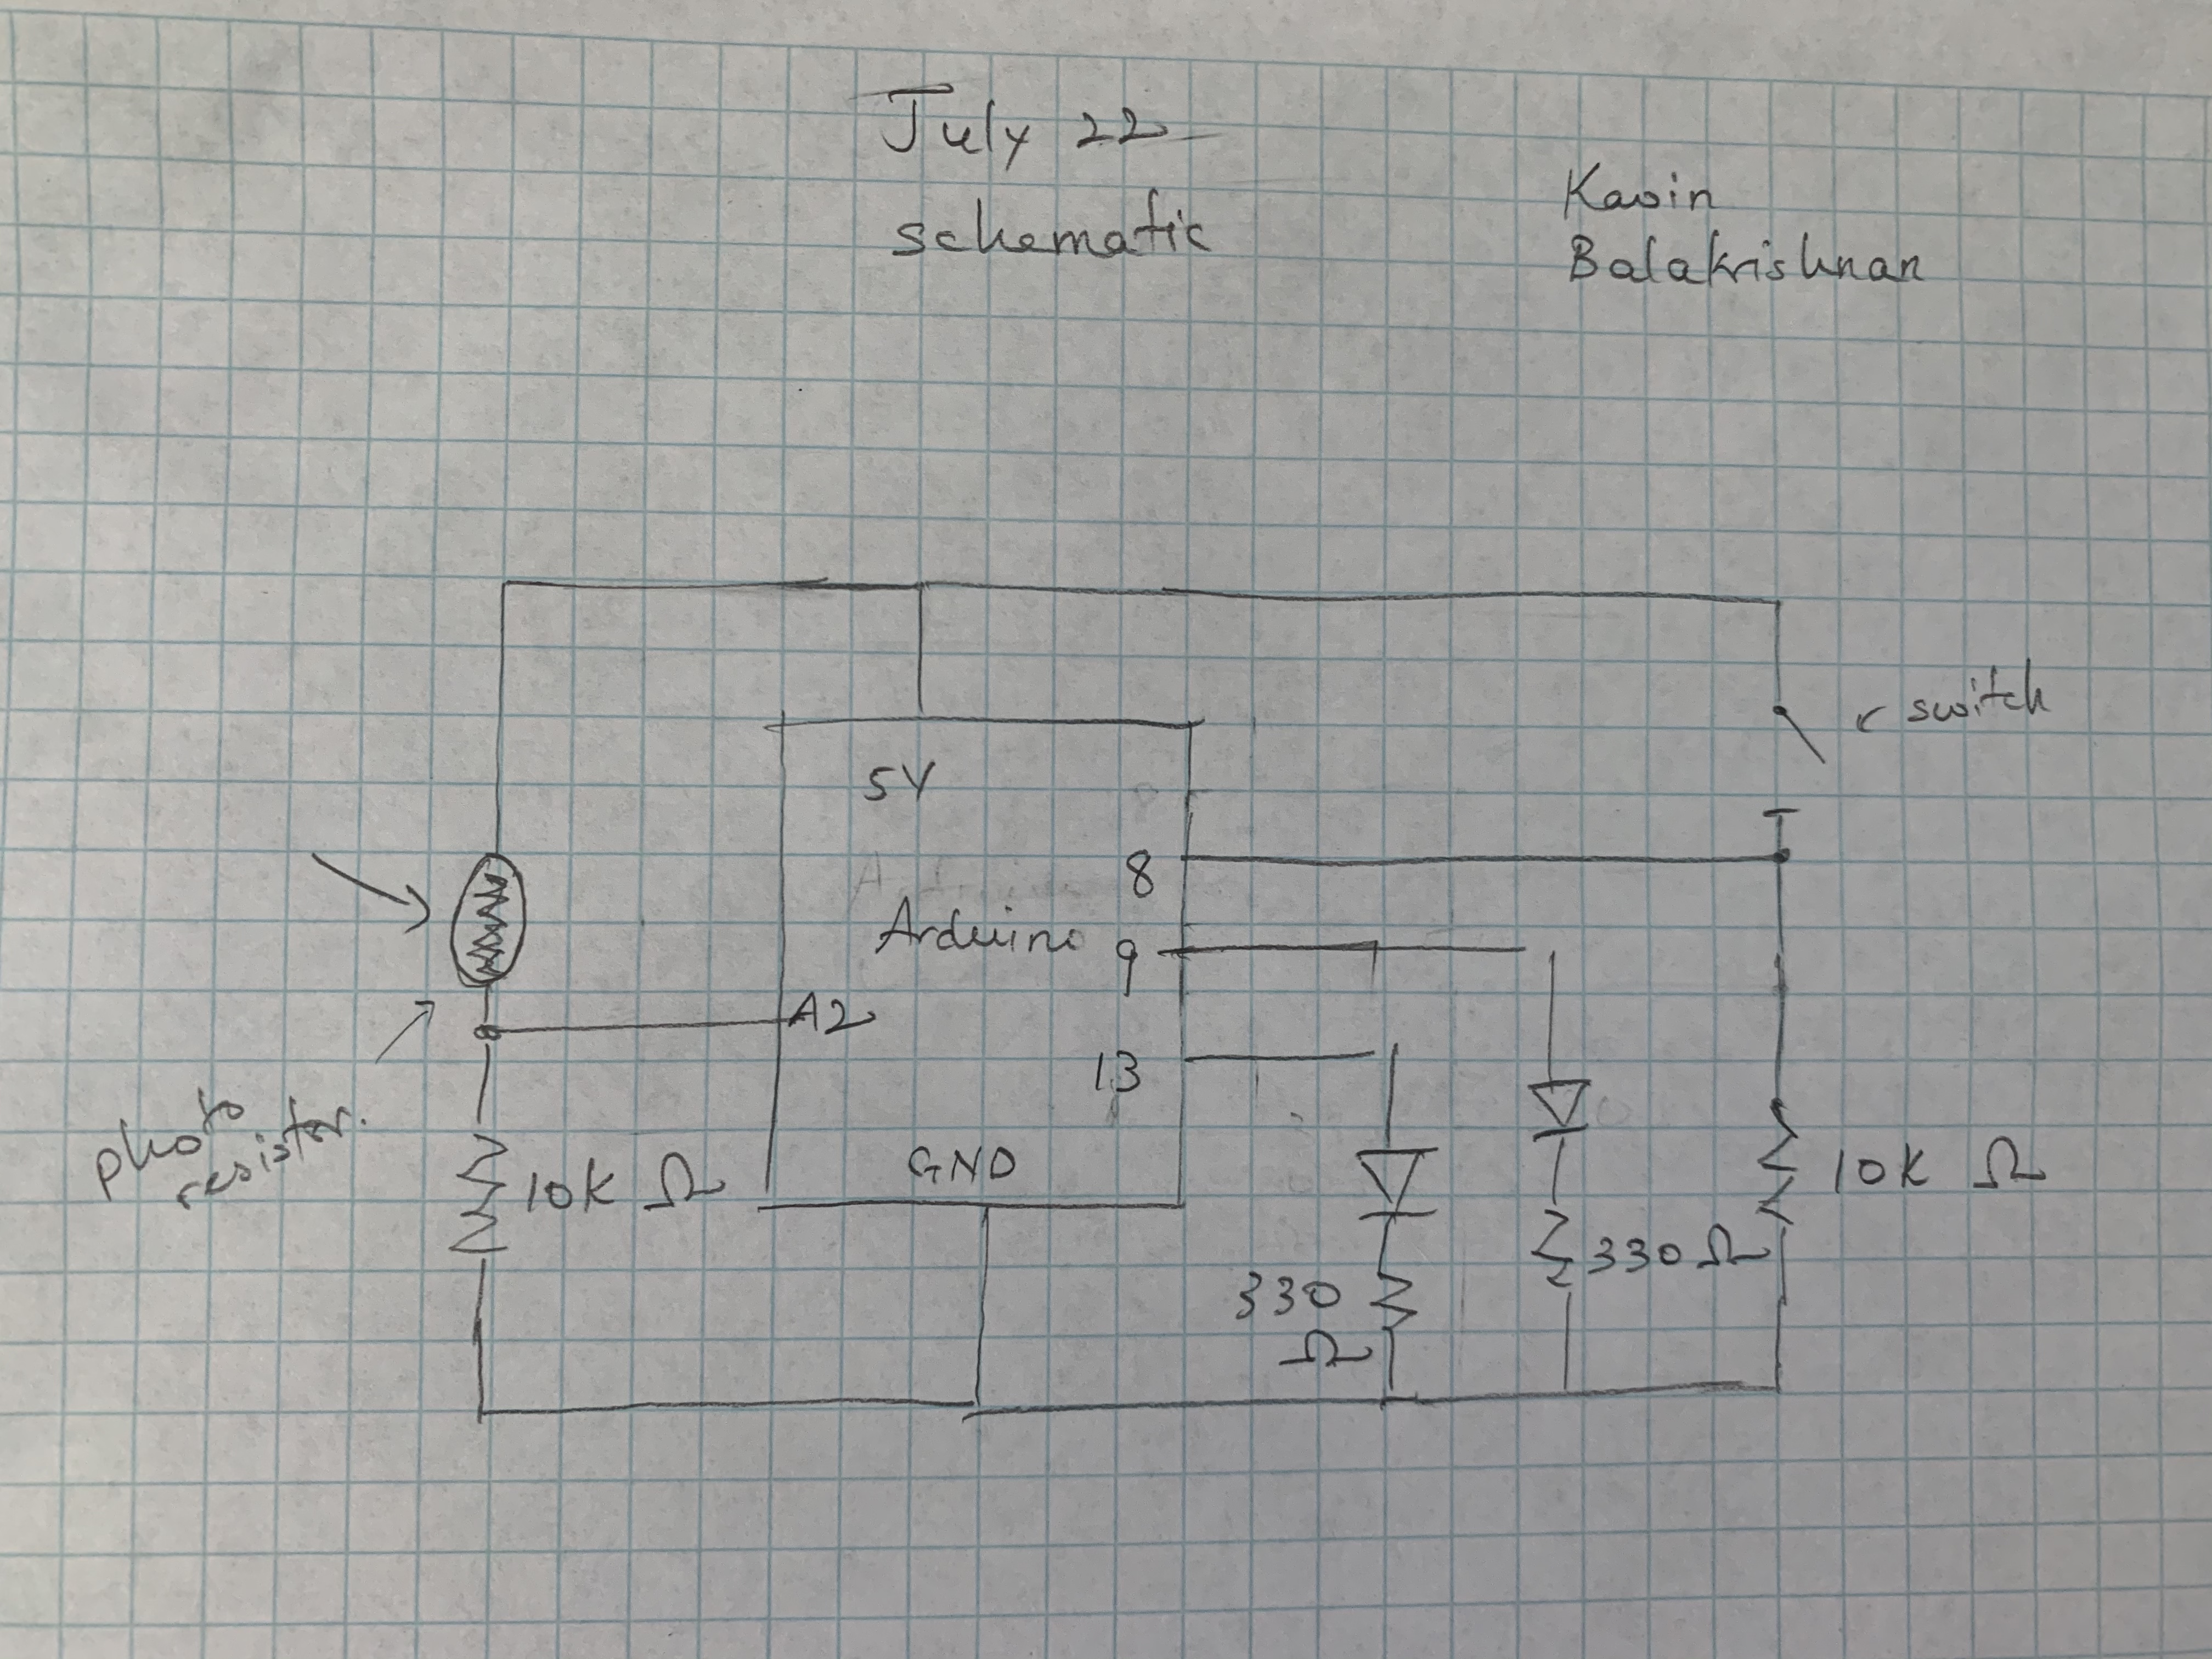 July 22
schematic
Kavin
Balakrishnan
switch
5V
8
Arduino
9
A2
13
photo
resistor.
10K Ω
GND
10K Ω
330 Ω
330
Ω